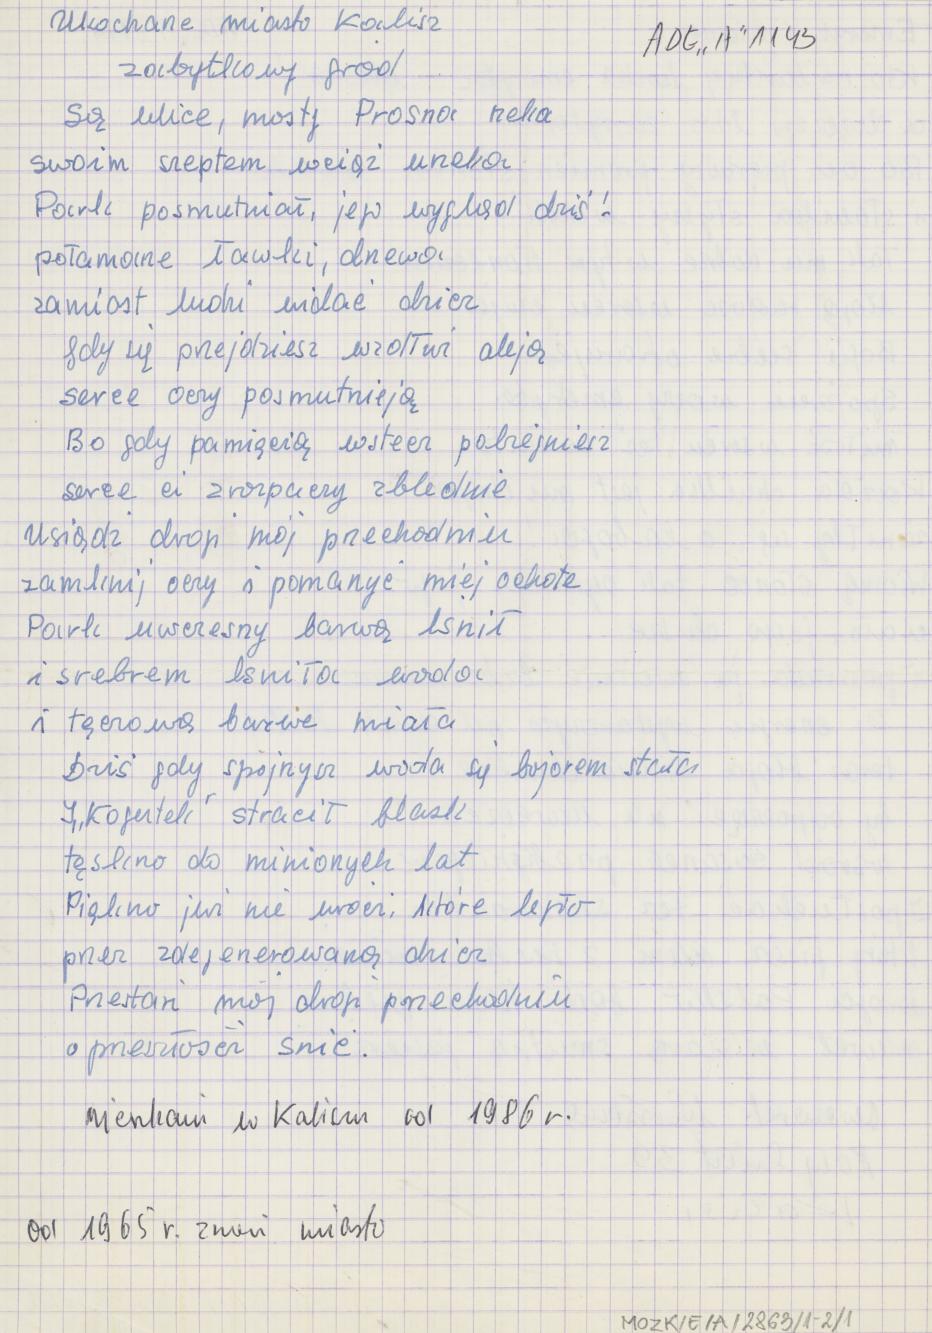 Ukochane miasto Kalisz
ADE „A" 1143
zabytkowy gród
Są ulice, mosty Prosna rzeka
swoim szeptem wciąż urzeka
Park posmutniał, jego wygląd dziś!
połamane ławki, drzewa
zamiast ludzi widać dzicz
gdy się przejdziesz wzdłuż aleją
serce oczy posmutnieją
Bo gdy pamięcią wstecz pobiegniesz
serce ci z rozpaczy zblednie
Usiądź drogi mój przechodniu
zamknij oczy i pomarzyć miej ochote
Park uwczesny barwą lśnił
i srebrem lśniła woda
i tęczową barwe miała
Dziś gdy spojrzysz woda się bajorem stała
I „Kogutek" stracił blask
tęskno do minionych lat
Piękno już nie wróci, które legło
przez zdegenerowaną dzicz
Przestań mój drogi przechodniu
o przeszłości śnić.
mieszkam w Kaliszu od 1986 r.
od 1965 r. znam miasto
MOZK/E/A/2863/1-2/1